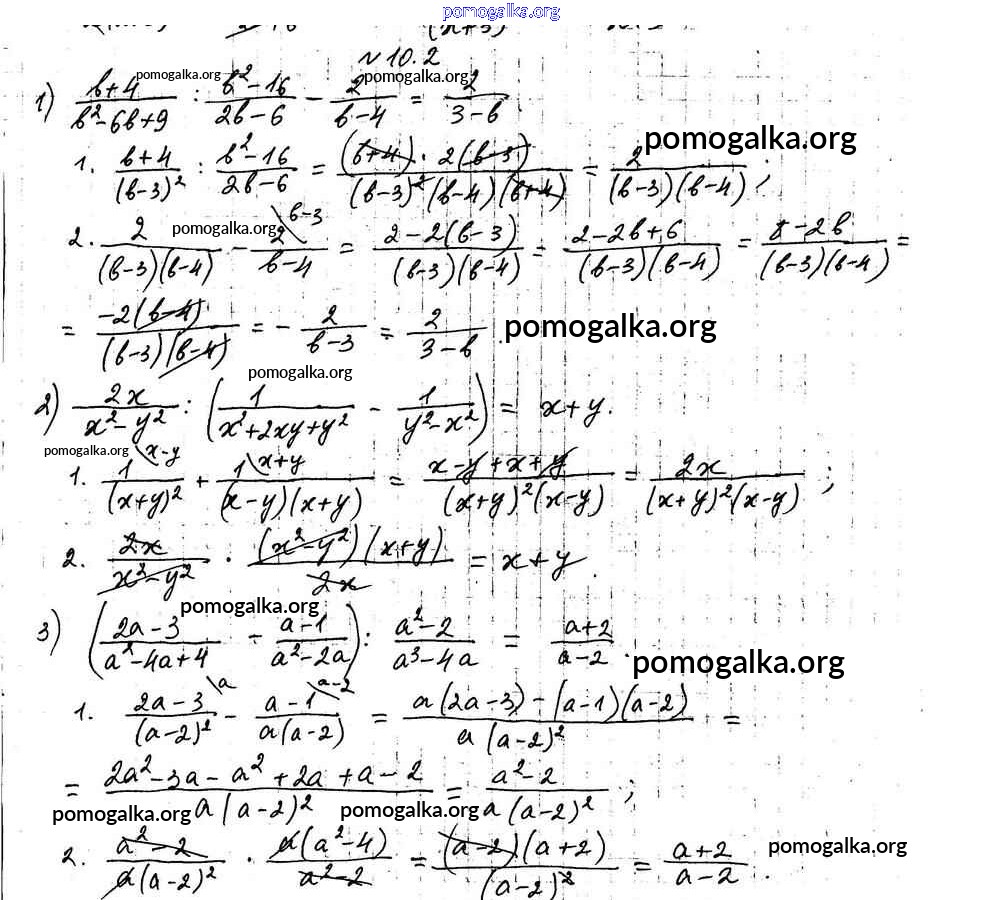 pomogalka.org
N 10.2
1) (b+4)/(b²-6b+9) : (b²-16)/(2b-6) - 2/(b-4) = 2/(3-b).
pomogalka.org pomogalka.org
pomogalka.org
1. (b+4)/(b-3)² : (b²-16)/(2b-6) = ((b+4)·2(b-3))/((b-3)²(b-4)(b+4)) = 2/((b-3)(b-4));
pomogalka.org
2. 2/((b-3)(b-4)) - 2\b-3/(b-4) = (2-2(b-3))/((b-3)(b-4)) = (2-2b+6)/((b-3)(b-4)) = (8-2b)/((b-3)(b-4)) =
= (-2(b-4))/((b-3)(b-4)) = - 2/(b-3) = 2/(3-b).
pomogalka.org
pomogalka.org
2) 2x/(x²-y²) : (1/(x²+2xy+y²) - 1/(y²-x²)) = x+y.
pomogalka.org
1. 1\x-y/(x+y)² + 1\x+y/((x-y)(x+y)) = (x-y+x+y)/((x+y)²(x-y)) = 2x/((x+y)²(x-y));
2. 2x/(x²-y²) · ((x²-y²)(x+y))/2x = x+y.
pomogalka.org
3) ((2a-3)/(a²-4a+4) - (a-1)/(a²-2a)) : (a²-2)/(a³-4a) = (a+2)/(a-2).
pomogalka.org
1. (2a-3)\a/(a-2)² - (a-1)\a-2/(a(a-2)) = (a(2a-3)-(a-1)(a-2))/(a(a-2)²) =
= (2a²-3a-a²+2a+a-2)/(a(a-2)²) = (a²-2)/(a(a-2)²);
pomogalka.org pomogalka.org
2. (a²-2)/(a(a-2)²) · (a(a²-4))/(a²-2) = ((a-2)(a+2))/(a-2)² = (a+2)/(a-2).
pomogalka.org